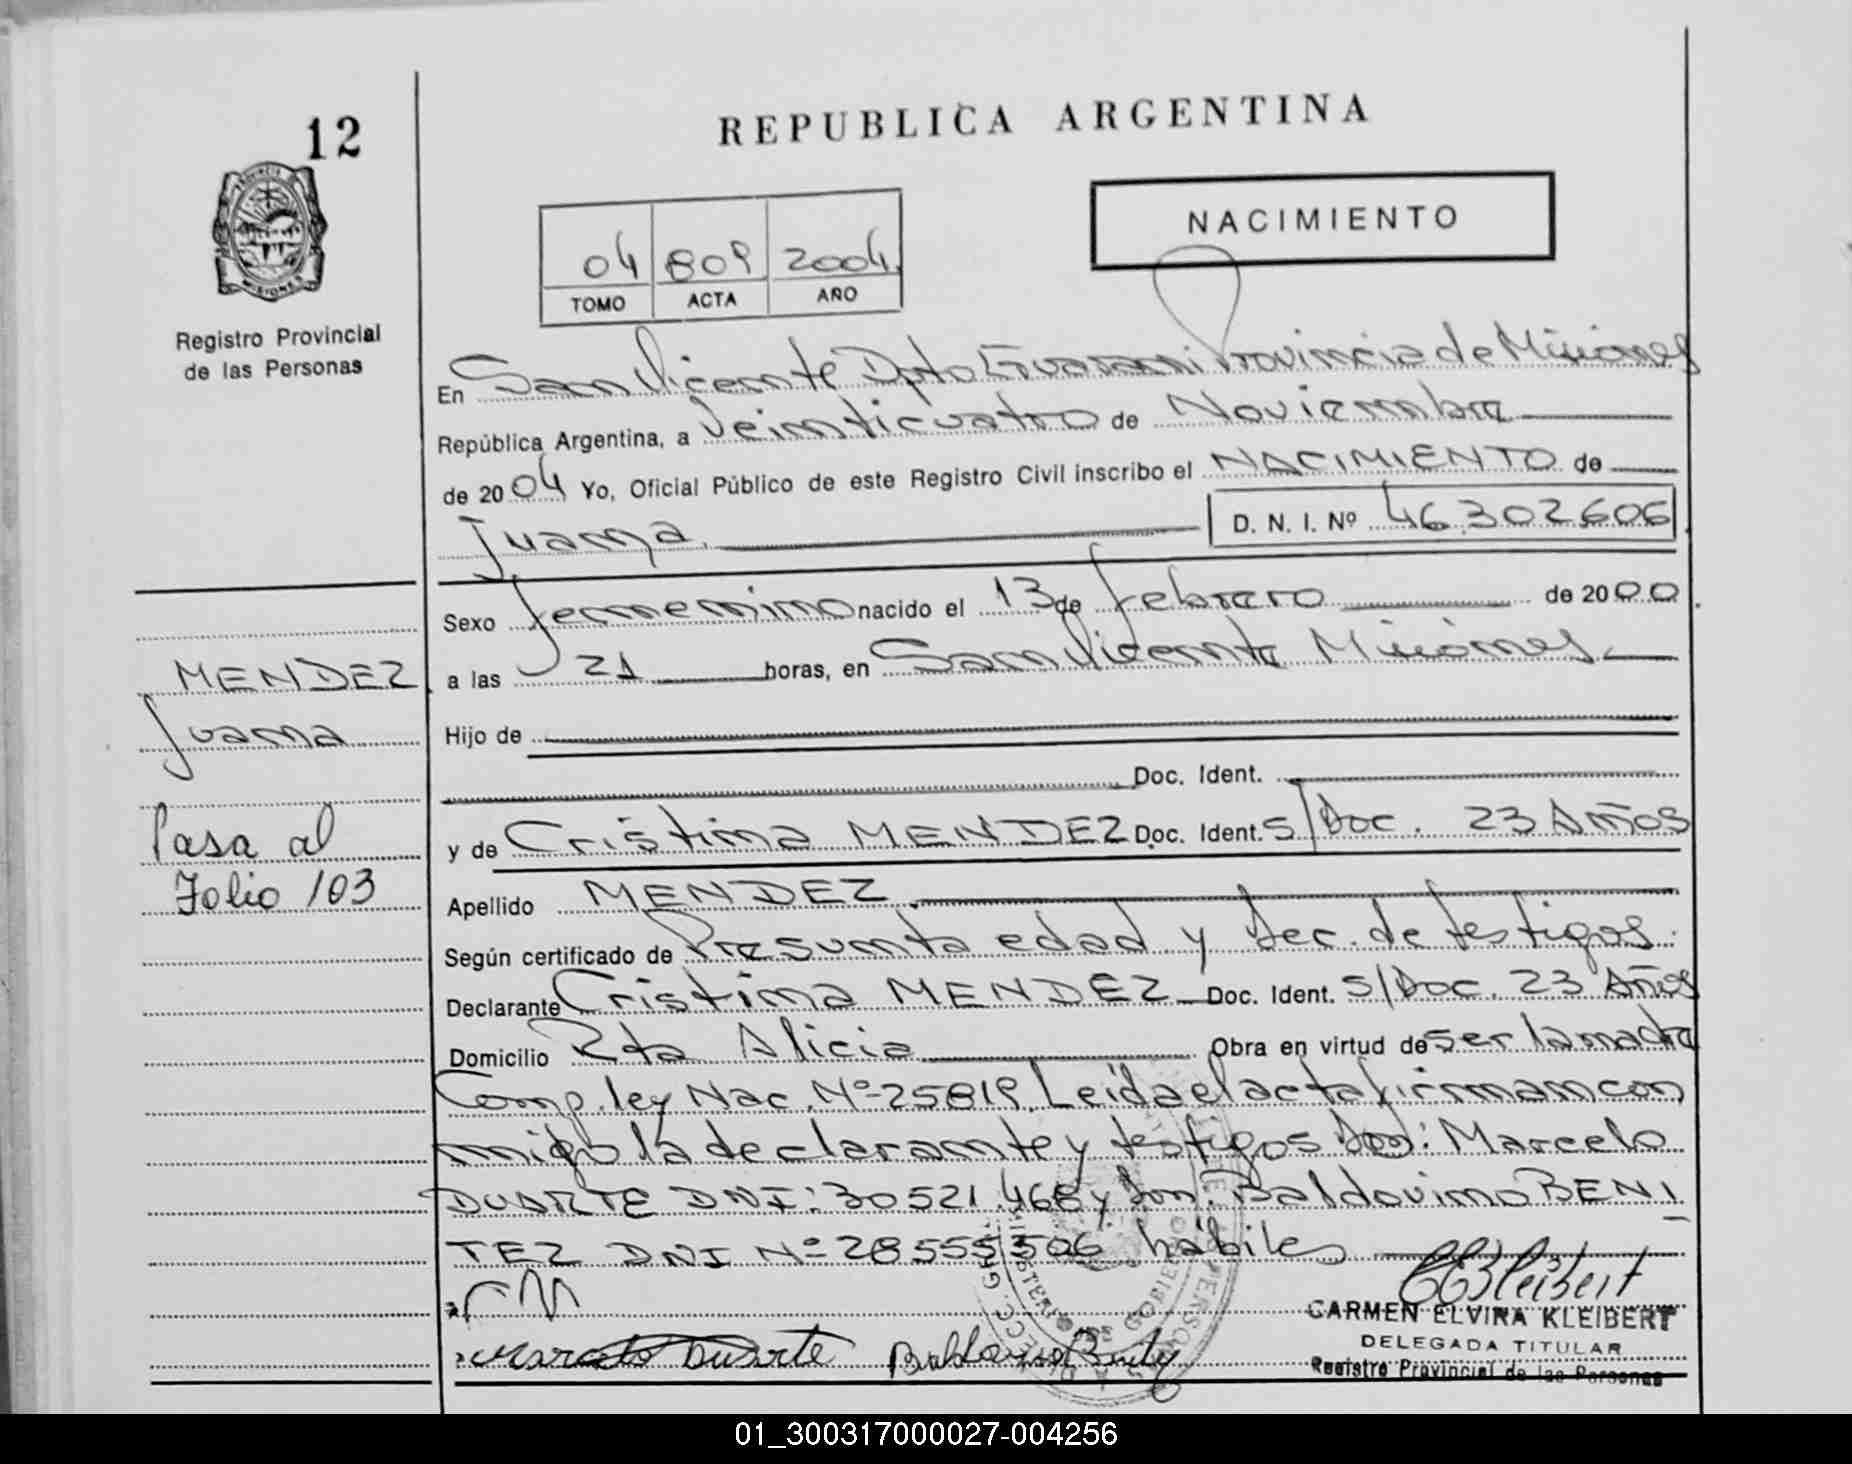 12
REPUBLICA ARGENTINA
NACIMIENTO
04 809 2004
TOMO ACTA AÑO
PROVINCIA
MISIONES
Registro Provincial
de las Personas
En San Vicente Dpto Guarani Provincia de Misiones
República Argentina, a Veinticuatro de Noviembre
de 2004 Yo, Oficial Público de este Registro Civil inscribo el NACIMIENTO de
Juana. D. N. I. Nº 46.302606
Sexo femenino nacido el 13 de febrero de 2000
a las 21 horas, en San Vicente Misiones.
MENDEZ
Juana
Hijo de
Doc. Ident.
Pasa al
Folio 103
y de Cristina MENDEZ Doc. Ident. S/Doc. 23 Años
Apellido MENDEZ.
Según certificado de Presunta edad y dec. de testigos.
Declarante Cristina MENDEZ Doc. Ident. S/Doc. 23 Años
Domicilio Rta Alicia Obra en virtud de ser la madre
Comp. ley Nac. Nº 25819. Leida el acta firman con
migo la declarante y testigos Don: Marcelo
DUARTE DNI: 30521.468 y Don. Baldovino BENI
TEZ DNI Nº 28555506 habiles
CM
CEKleibert
CARMEN ELVIRA KLEIBERT
DELEGADA TITULAR
Registro Provincial de las Personas
Marcelo Duarte
MINISTERIO DE GOBIERNO
01_300317000027-004256